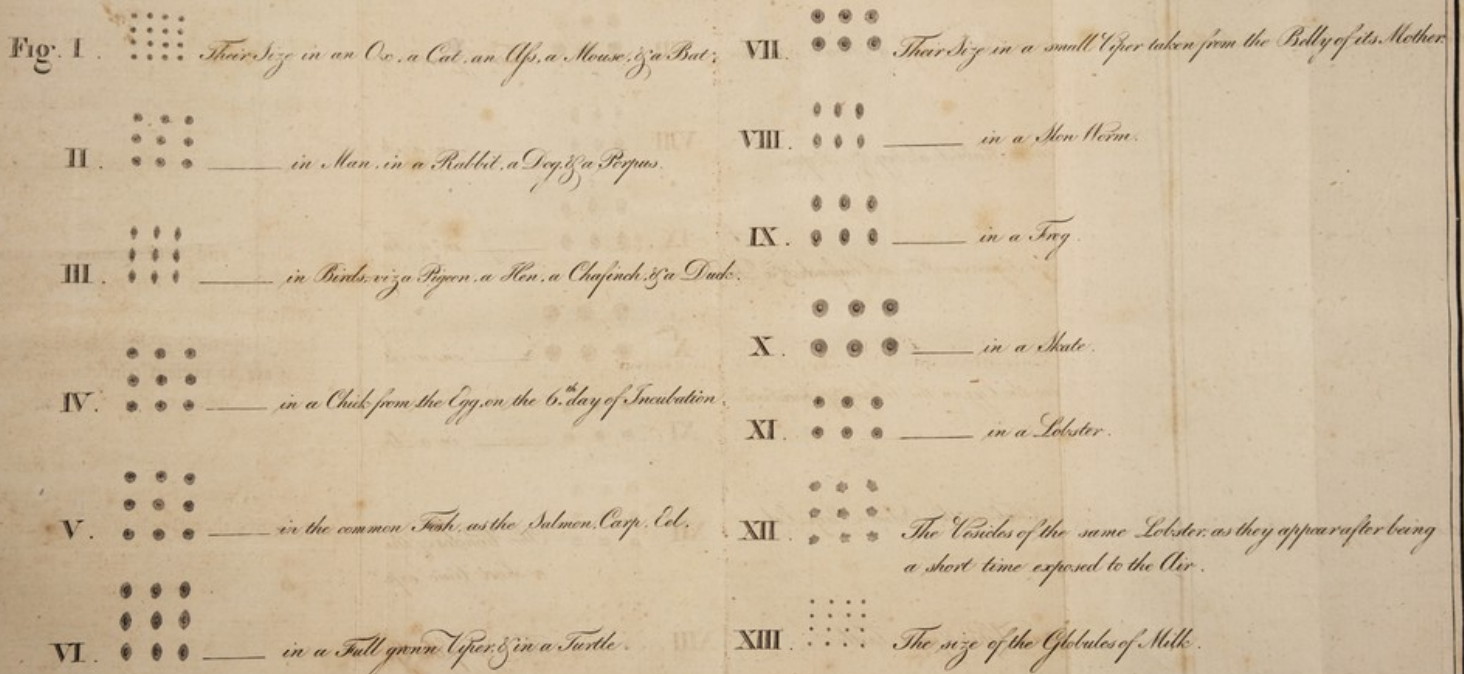 Fig. I. Their Size in an Ox, a Cat, an Aſs, a Mouse, & a Bat.
II. in Man, in a Rabbit, a Dog, & a Porpus.
III. in Birds, viz a Pigeon, a Hen, a Chafinch, & a Duck.
IV. in a Chick from the Egg, on the 6th day of Incubation.
V. in the common Fish, as the Salmon, Carp, Eel.
VI. in a Full grown Viper, & in a Turtle.
VII. Their Size in a small Viper taken from the Belly of its Mother.
VIII. in a Slow Worm.
IX. in a Frog.
X. in a Skate.
XI. in a Lobster.
XII. The Vesicles of the same Lobster, as they appear after being
a short time exposed to the Air.
XIII. The size of the Globules of Milk.